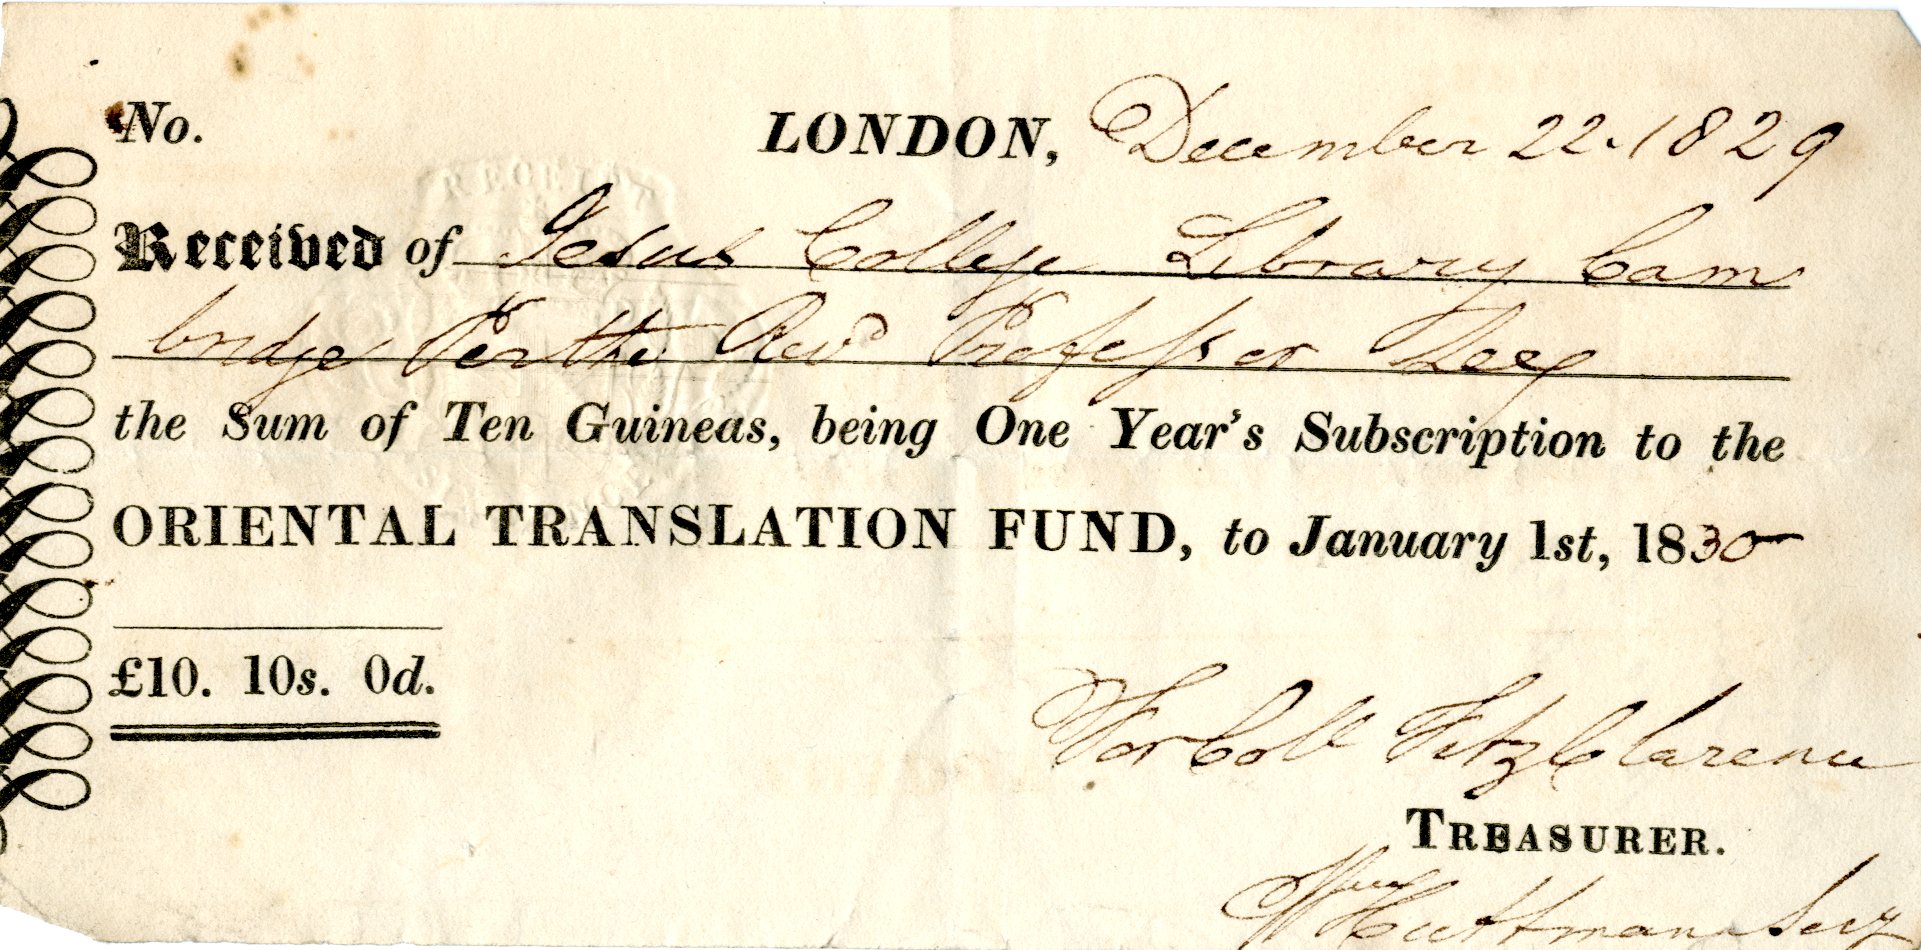 No. LONDON, December 22. 1829
RECEIPT
Received of Jesus College Library Cam
bridge Per the Revd Professor Lee
the Sum of Ten Guineas, being One Year's Subscription to the
ORIENTAL TRANSLATION FUND, to January 1st, 1830
£10. 10s. 0d.
For Coll FitzClarence
TREASURER.
Wm Huttmann Secy